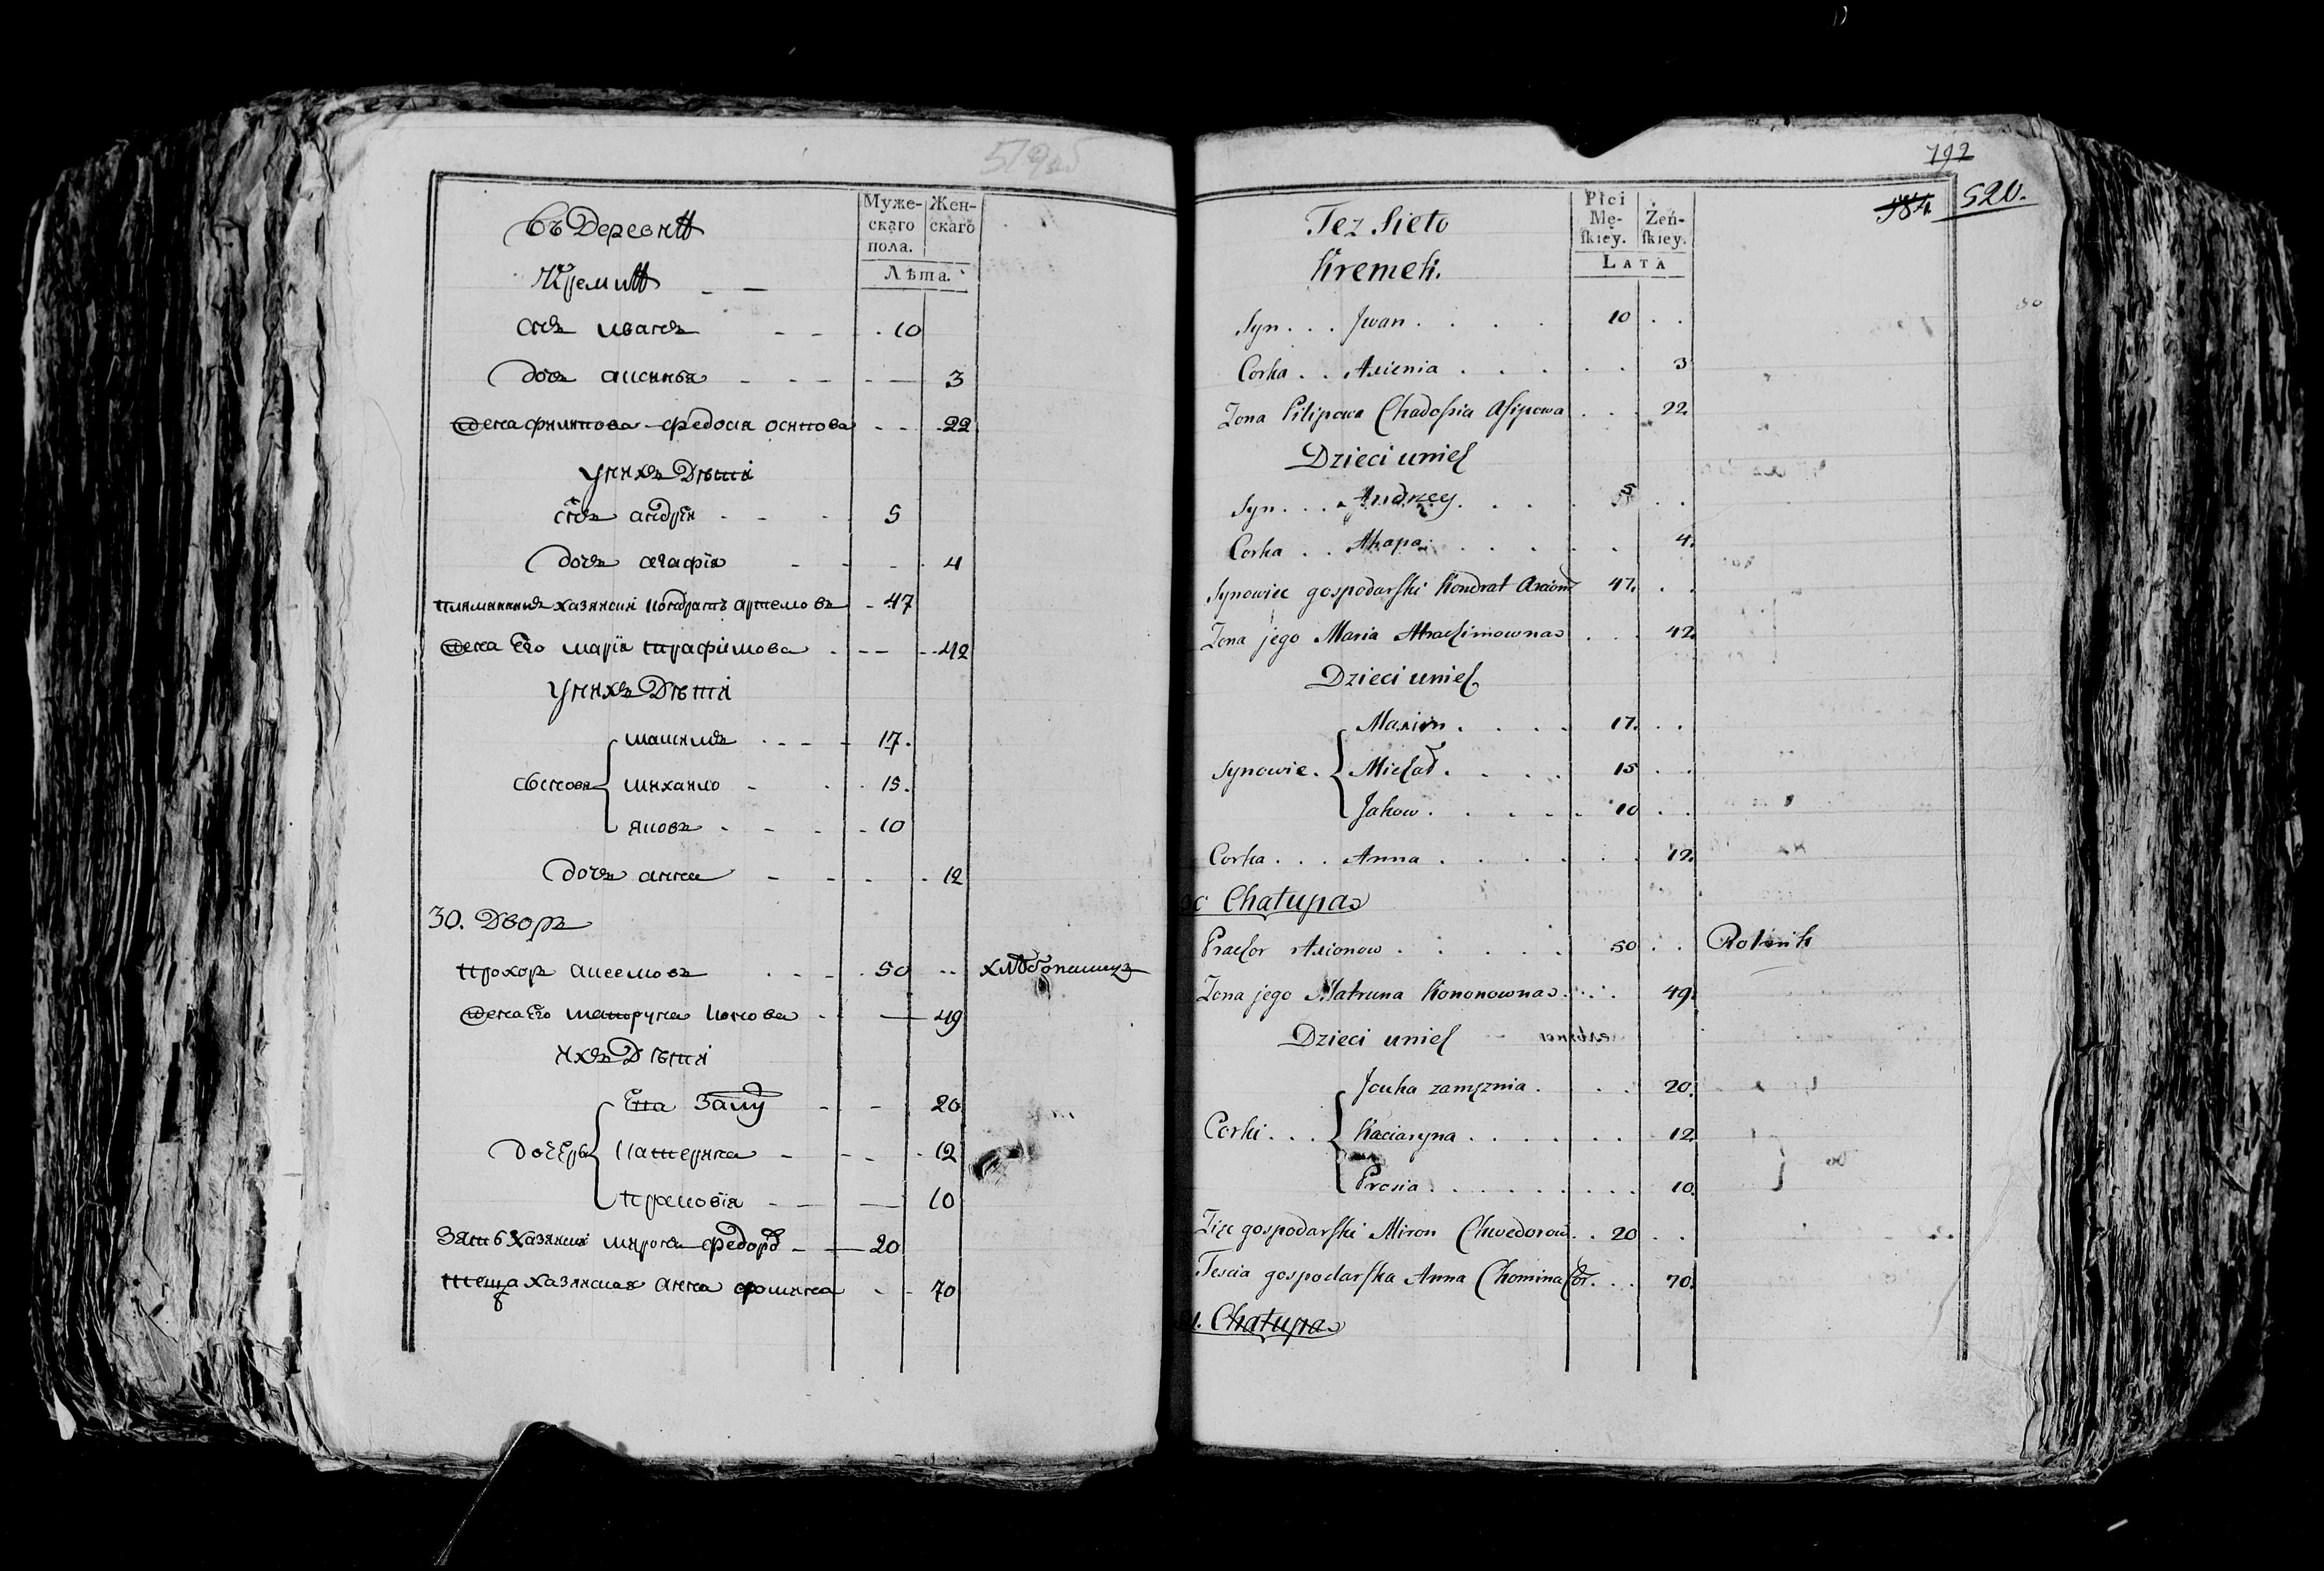 519об
Въ Деревнѣ
Муже-
скаго
пола.
Жен-
скаго
Лѣта.
Кремкѣ
снъ иванъ 10
дочь аксинья 3
Жена филипова федосия осипова 22
У них Дѣти
снъ андрѣи 5
дочь агафiя 4
племянникъ хазяиски кондратъ артемовъ 47
Жена его марiя трафимова 42
У них Дѣти
сыновя
максимъ 17.
михаило 15.
яковъ 10
дочь анна 12
30. Дворъ
прохоръ аксемовъ 50 хлѣбопашецъ
Жена его матруна конова 49
их Дѣти
дочерь
За му 20
катерина 12
прасковiя 10
Зять хазяиски миронъ федоро 20
теща хазяиская анна фомина 70
792
184. 520.
Tez Sieło
Płci
Mę-
skiey.
Żeń-
skiey.
Lata
Kremek.
Syn . . . Jwan . . . . 10 . .
Corka . . Axienia . . . . . . 3
Zona Pilipowa Chadosia Asipowa . . . 22
Dzieci unich
Syn . . . Andrzey . . . 5 . .
Corka . . Ahapa . . . . . . 4.
Synowiec gospodarski Kondrat Axiono 47. . .
Zona jego Maria Atrachimowna . . . 42
Dzieci unich
Synowie.
Maxim . . . . 17. . .
Michał . . . . 15 . .
Jakow . . . . . 10 . .
Corka . . . Anna . . . . . . 12.
30 Chałupa
Prachor Axionow . . . . . 50 . . Rolnik
Zona jego Matruna Kononowna . . . 49.
Dzieci unich
Corki . . .
Jouka zamęznia . . . 20.
Kaciaryna . . . . . . 12
Prosia . . . . . . . . 10.
Zięc gospodarski Miron Chwedorow . . 20 . .
Tescia gospodarska Anna Chomina Cor . . . 70.
Chałupa